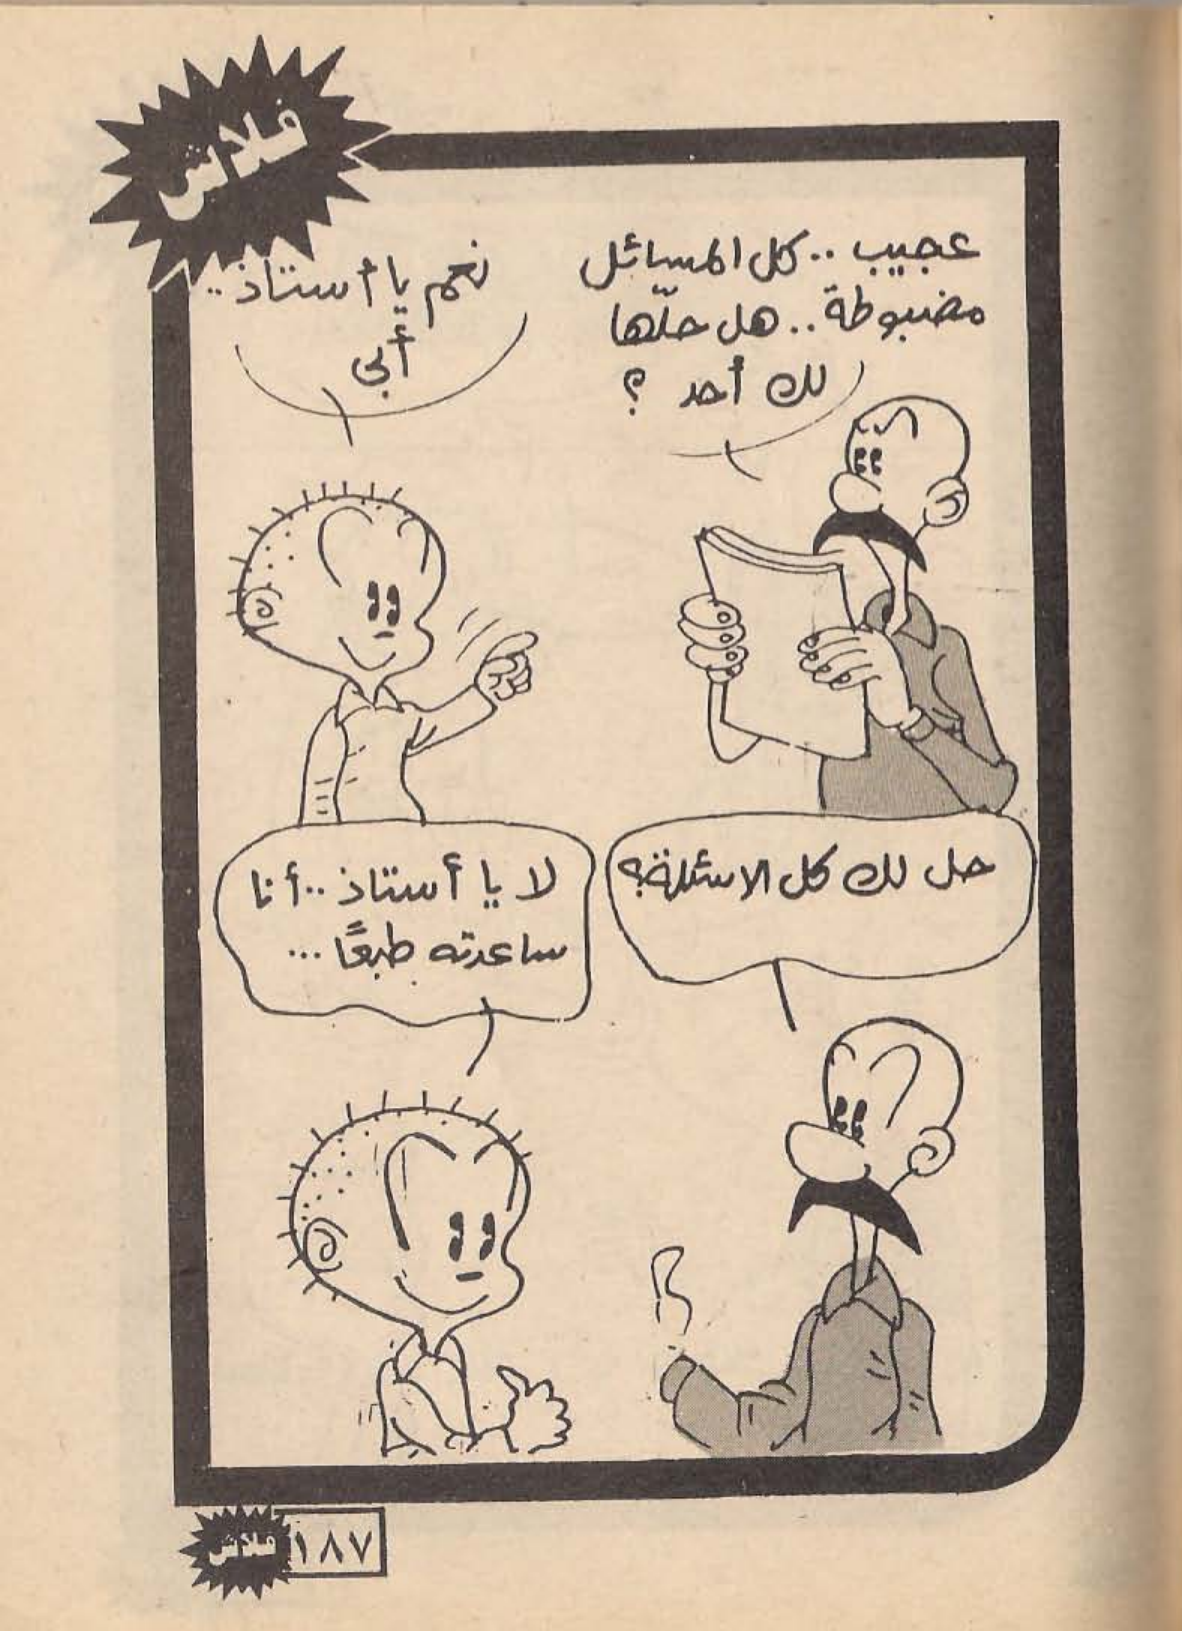 فلاش
عجيب .. كل المسائل
مضبوطة .. هل حلّها
لك أحد ؟
نعم يا أستاذ ..
أبى
حل لك كل الاسئلة؟
لا يا أستاذ .. أنا
ساعدته طبعًا ...
فلاش
١٨٧